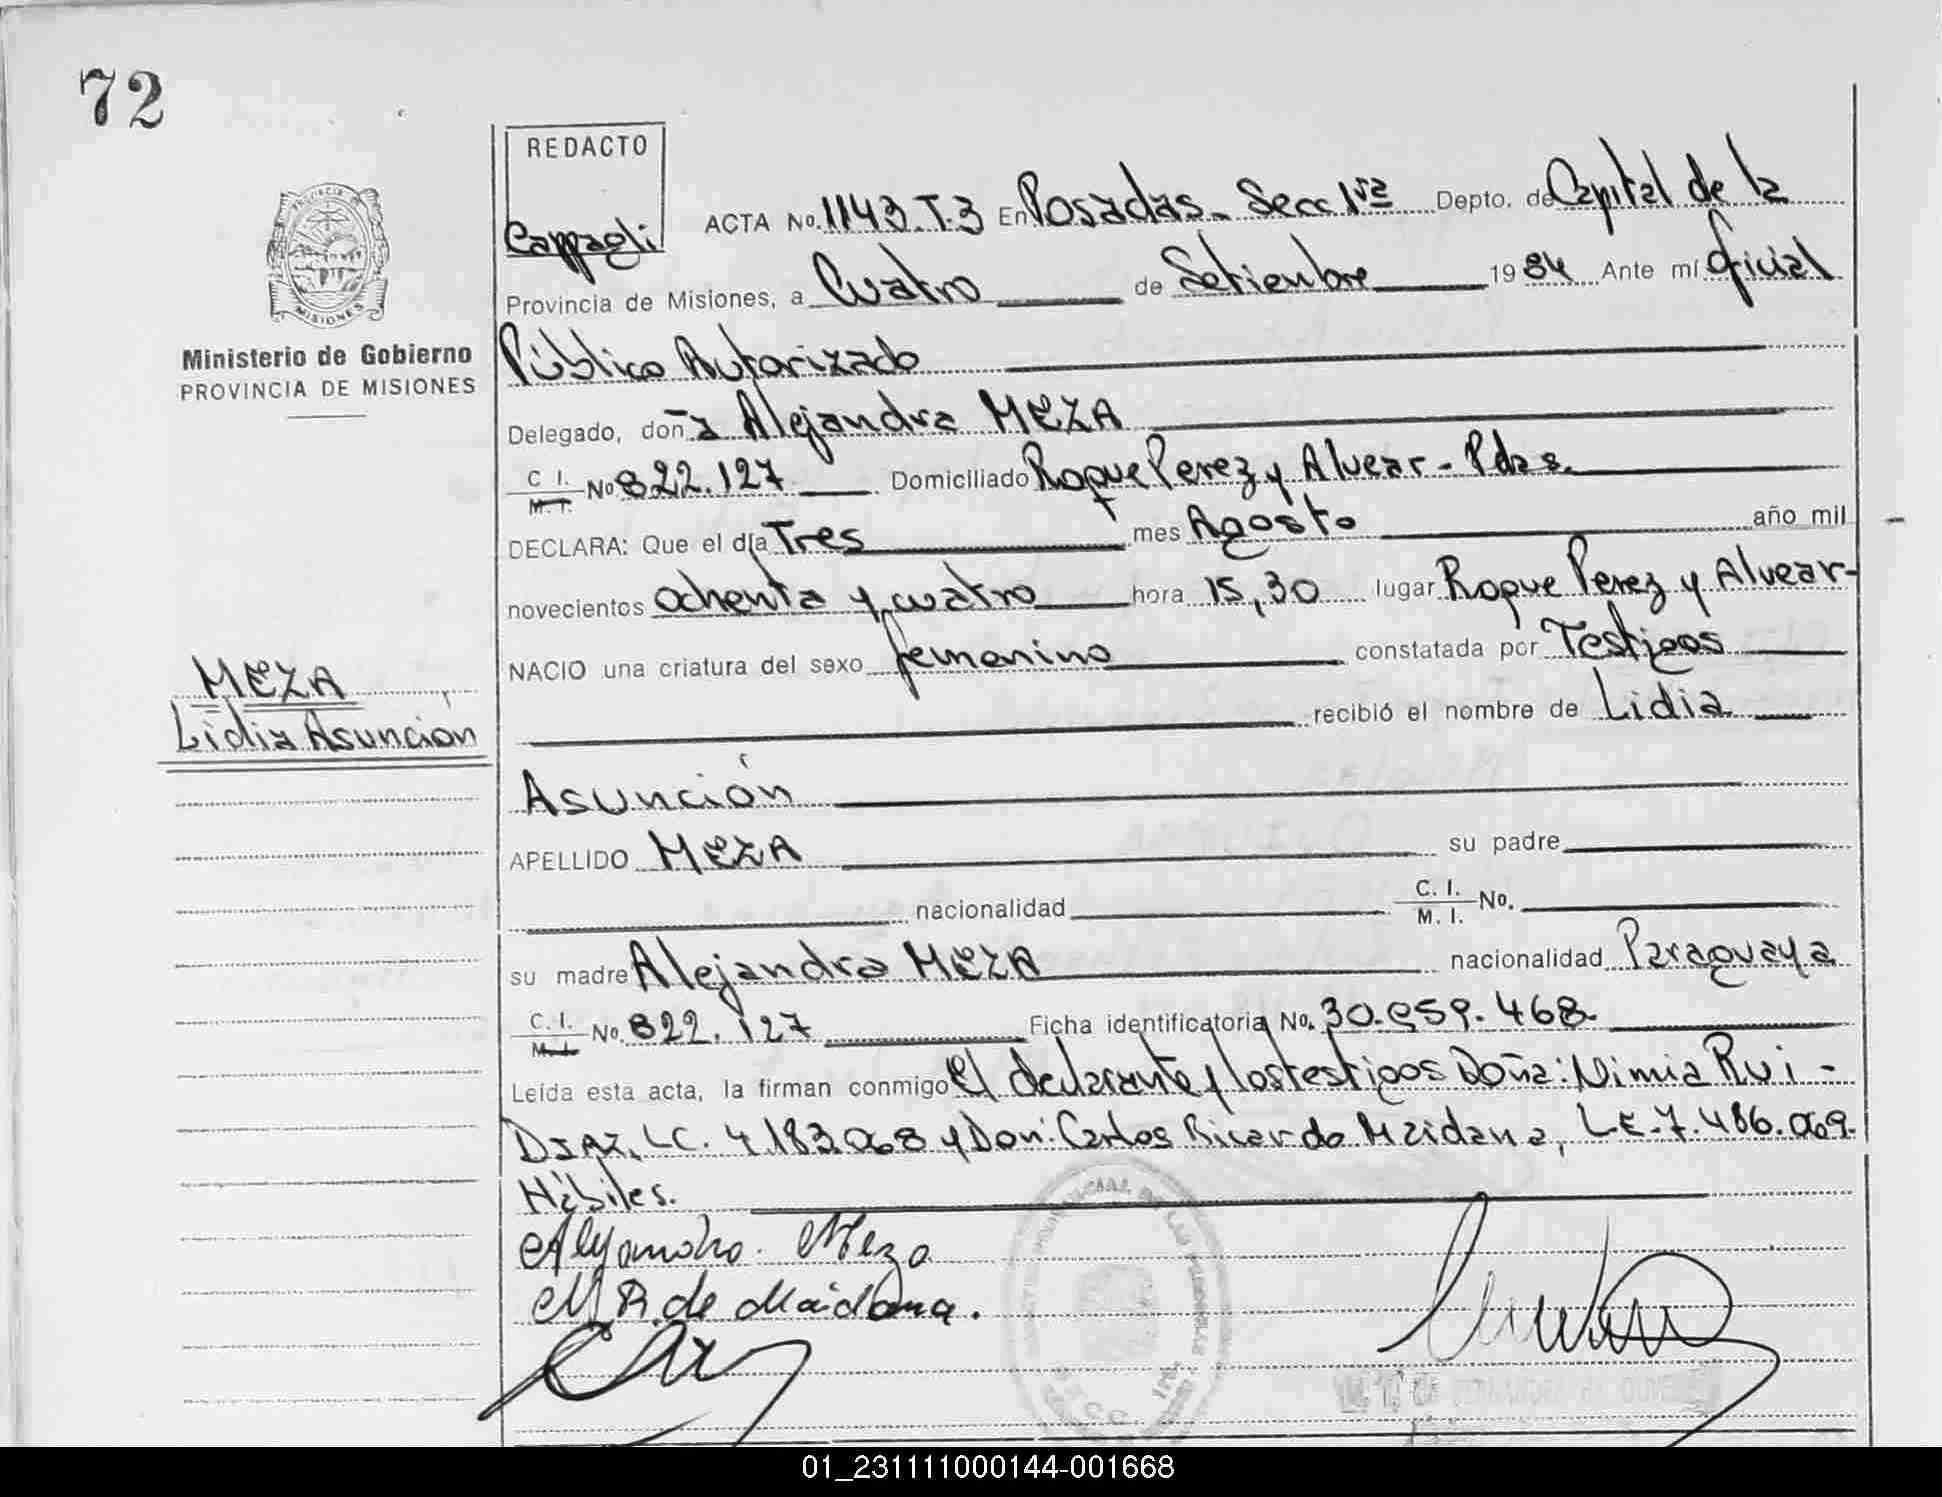 72
REDACTO
Cappagli
ACTA No. 1143.T.3 En Posadas - Secc 1ra Depto. de Capital de la
Provincia de Misiones, a Cuatro de Setiembre 1984 Ante mí Oficial
Ministerio de Gobierno
PROVINCIA DE MISIONES
Público Autorizado
Delegado, doña Alejandra MEZA
C. I. M. I. No 822.127 Domiciliado Roque Perez y Alvear - Pdas.
DECLARA: Que el día Tres mes Agosto año mil
novecientos ochenta y cuatro hora 15,30 lugar Roque Perez y Alvear-
NACIO una criatura del sexo femenino constatada por Testigos
MEZA
Lidia Asunción
recibió el nombre de Lidia
Asunción
APELLIDO MEZA su padre
nacionalidad C. I. M. I. No.
su madre Alejandra MEZA nacionalidad Paraguaya
C. I. M. I. No. 822.127 Ficha identificatoria No. 30.959.468.
Leída esta acta, la firman conmigo el declarante y los testigos Doña: Nimia Rui-
DIAZ, LC. 4.183.068 y Don: Carlos Ricardo Maidana, LE-7.486.069.
Hábiles.
Alejandra. Meza
M R. de Maidana.
01_231111000144-001668